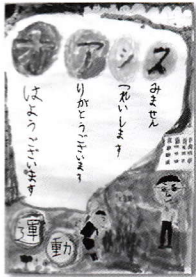 オアシス
はようございます
りがとうございます
つれいします
みません
運動